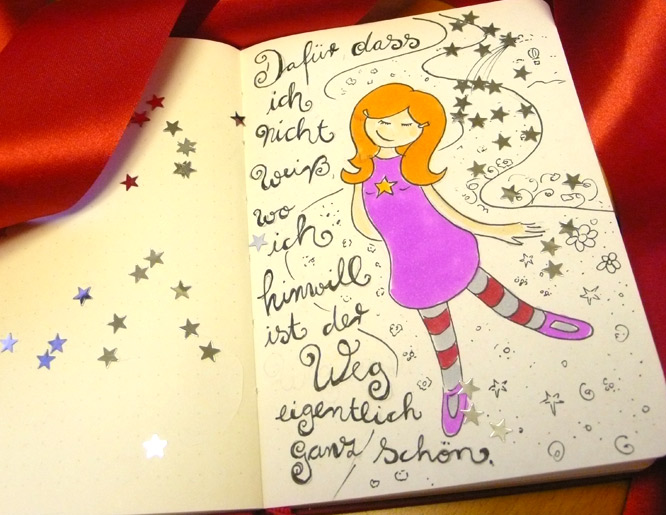 Dafür dass
ich
nicht
weiß
wo
ich
hinwill
ist der
Weg
eigentlich
ganz schön.